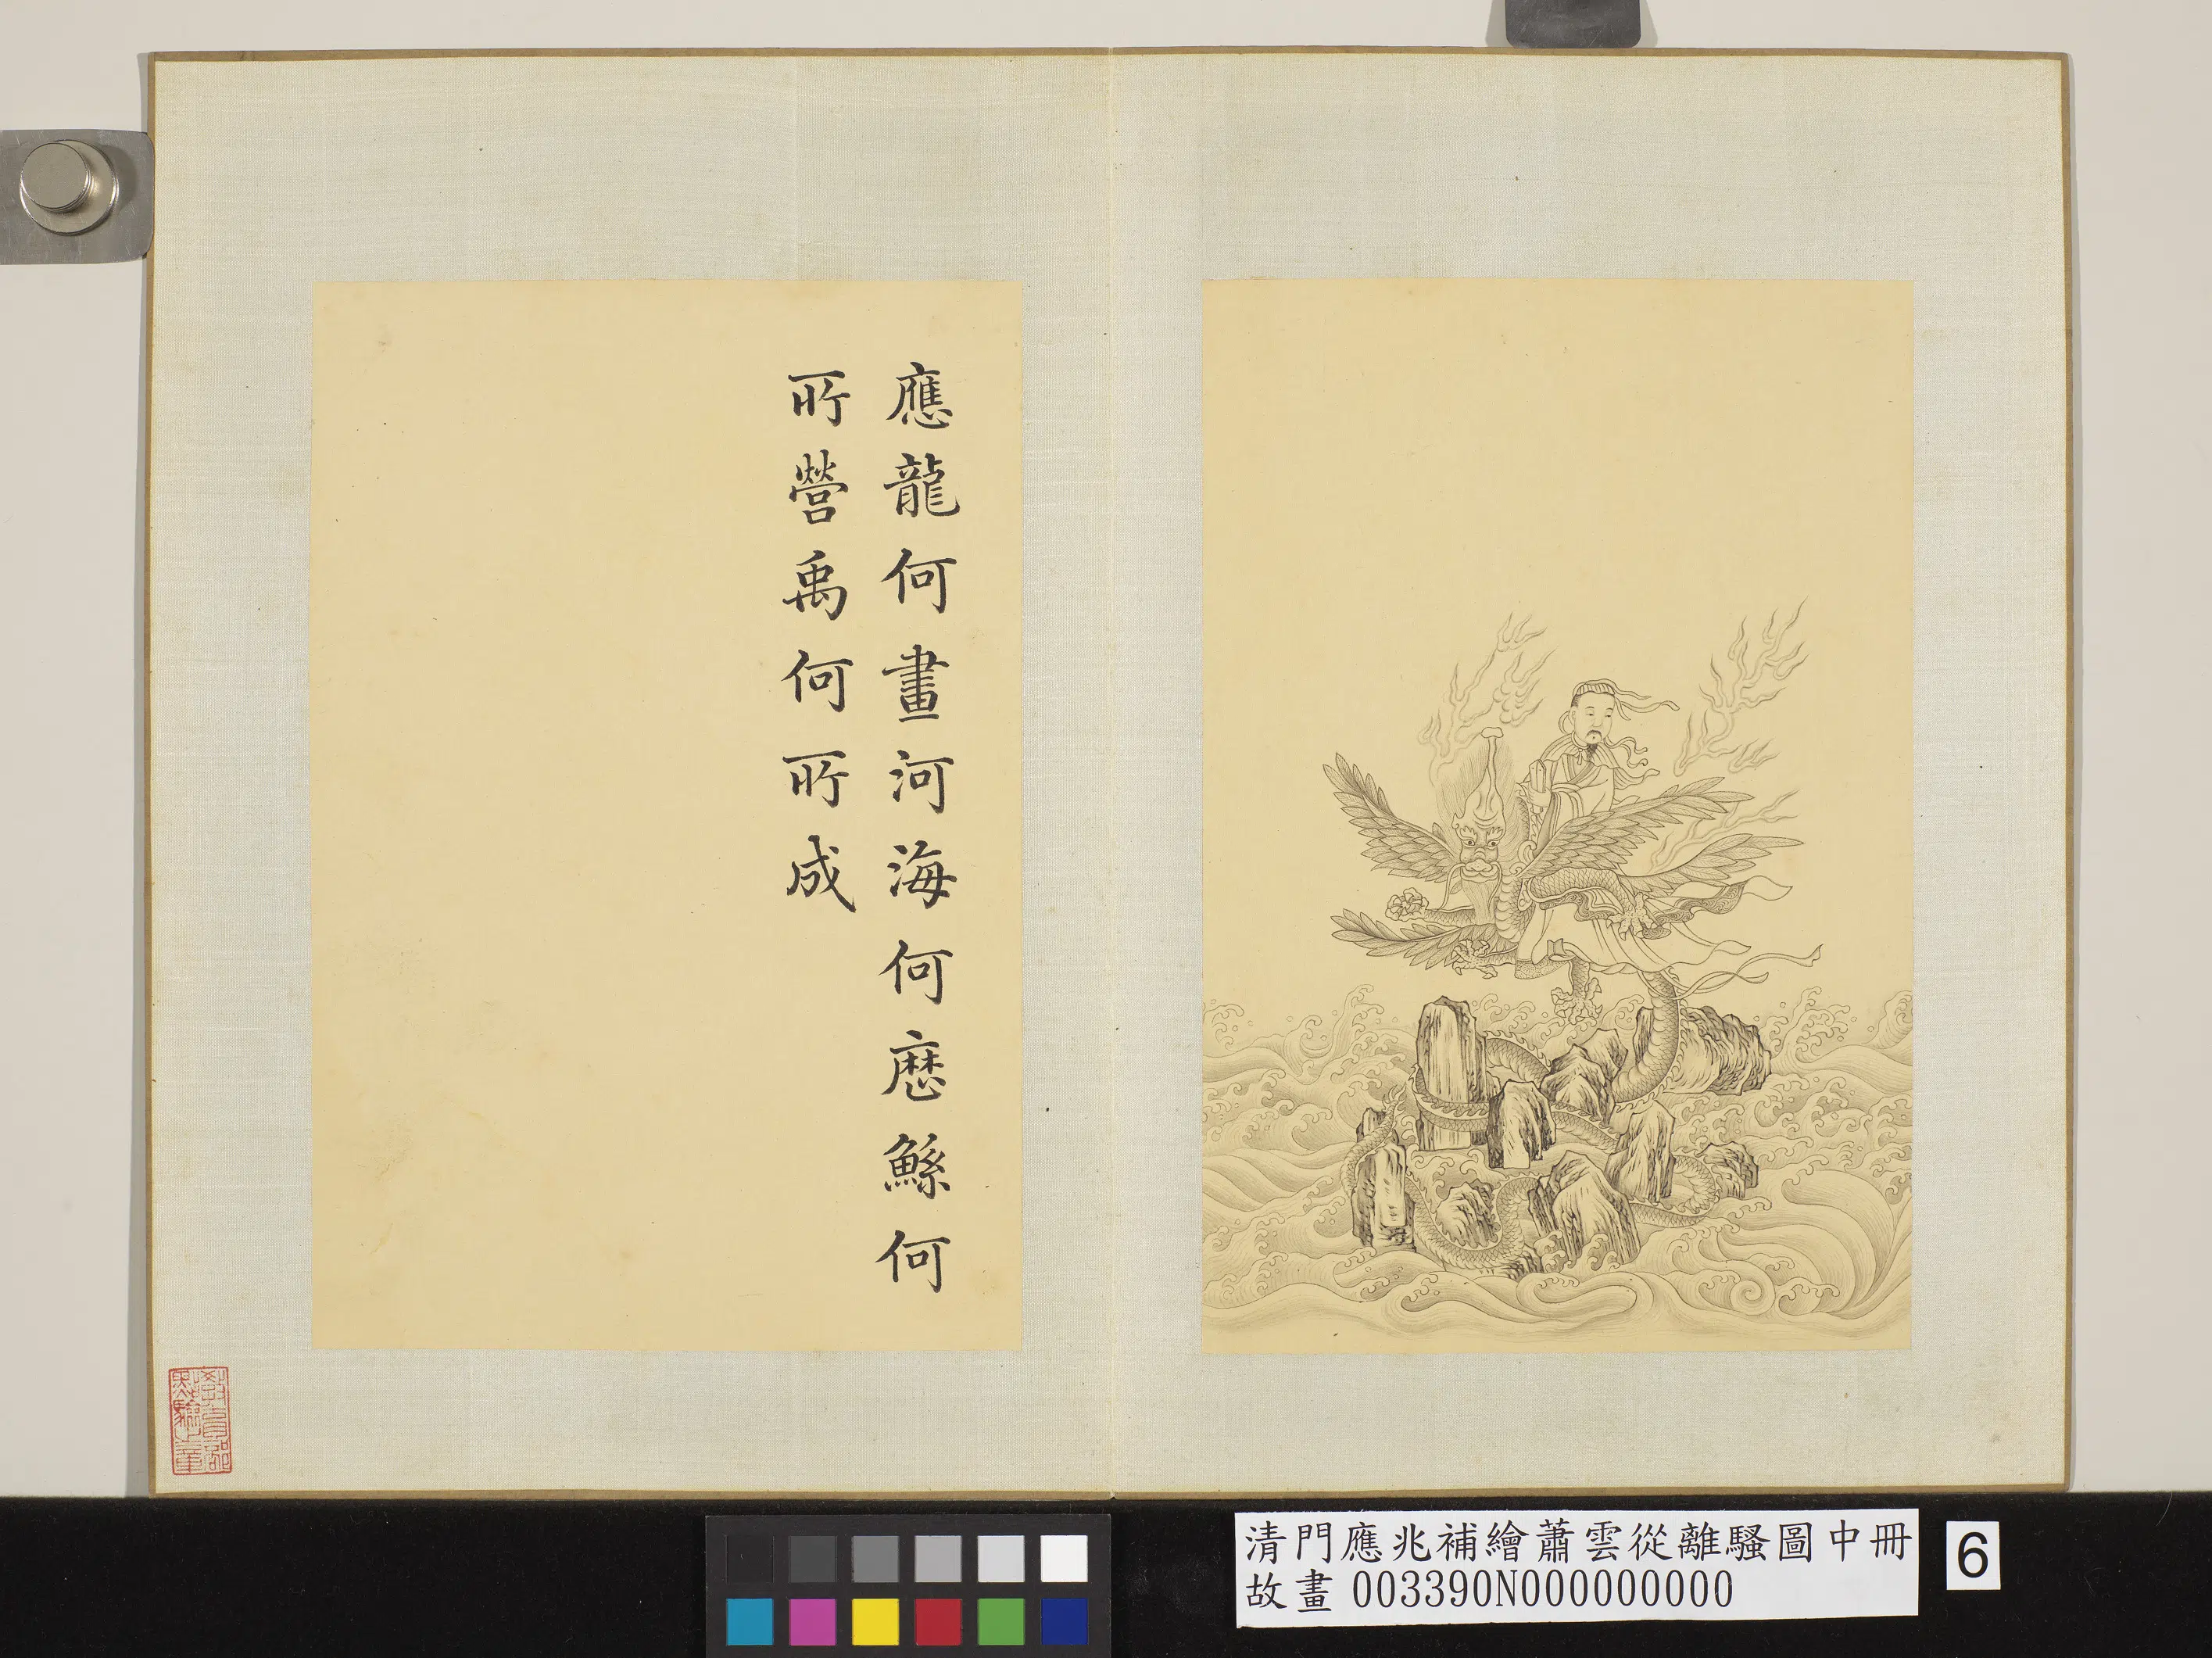 應龍何畫河海何厯鯀何
所營禹何所成
教育部
點驗之章
清門應兆補繪蕭雲從離騷圖中冊
故畫 003390N000000000
6